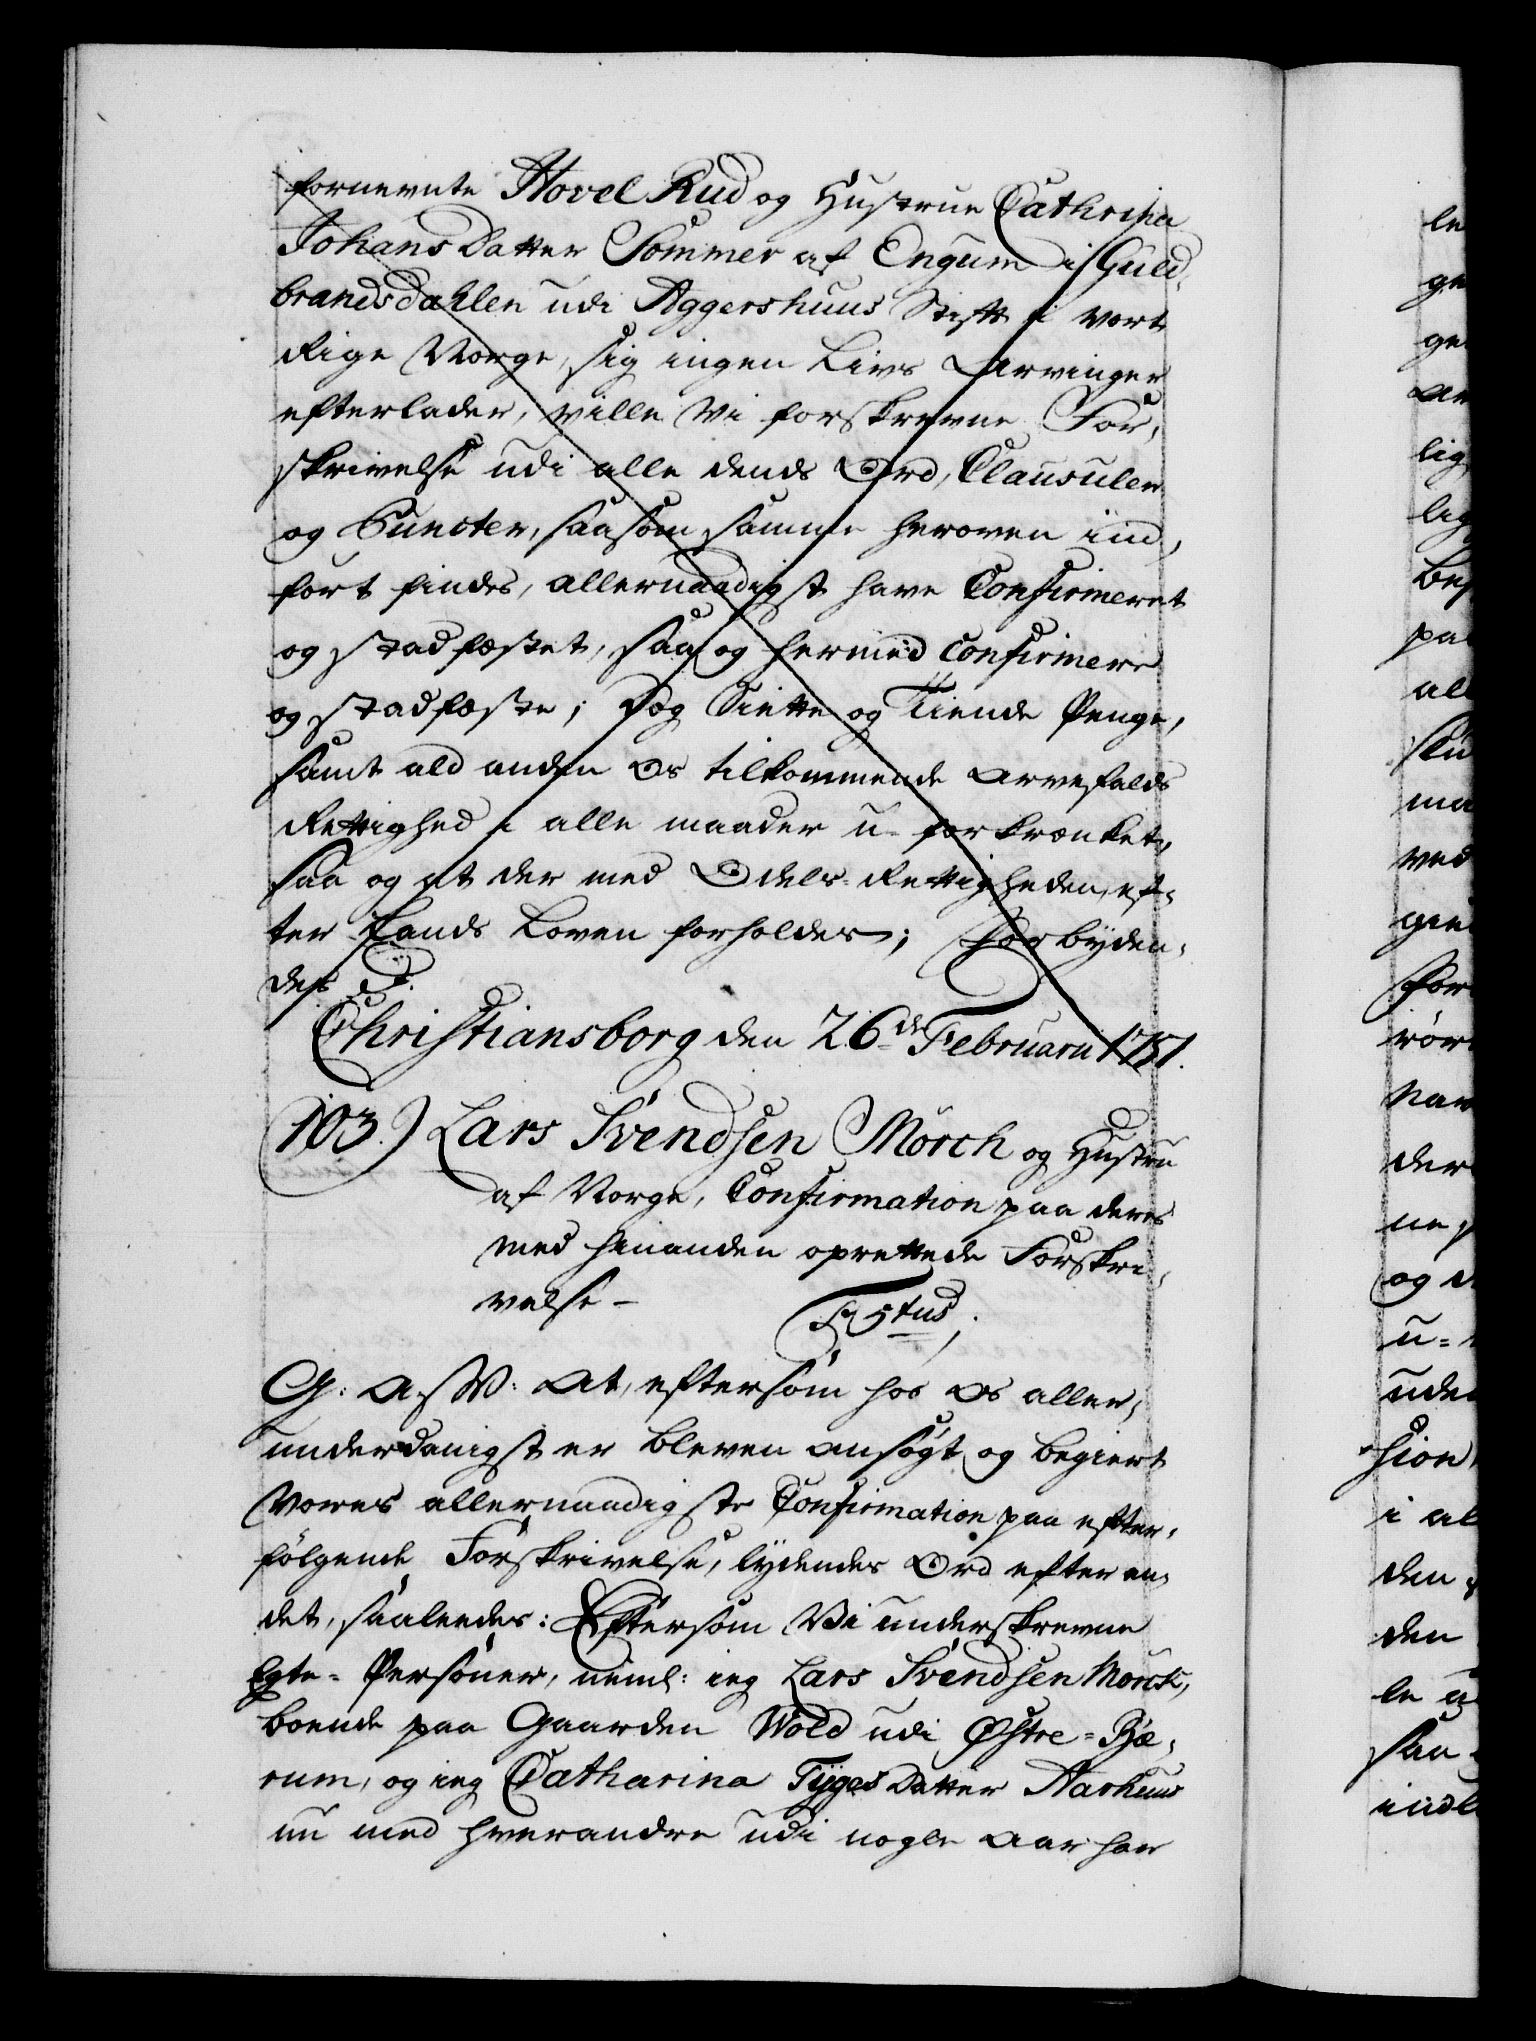 fornevnte Hovel Rud og Hustrue Cathrina
Johans Datter Sommer af Engum i Guld-
brandsdahlen udi Aggershuus Stift i vort
Rige Norge, sig ingen Livs Arvinger
efterlader, ville Vi forskrevne For-
skrivelse udi alle dends Ord, Clausuler
og Puncter, saasom samme heroven ind-
fört findes, allernaadigst have Confirmeret
og stadfæstet, saa og hermed Confirmere
og stadfæste; Dog Siette og Tiende Penge,
samt ald anden Os tilkommende Arvefalds
Rettighed i alle maader u-forkrænket,
saa og at der med Odels-Rettigheden, ef-
ter Lands Loven forholdes; Forbyden-
des &.
Christiansborg den 26de Februarii 1751.
103.) Lars Svendsen Mörch og Hustru
af Norge, Confirmation paa deres
med hinanden oprettede Forskri-
velse -
F 5tus.
G: A: W: At, eftersom hos Os aller-
underdanigst er bleven ansögt og begiert
Vores allernaadigste Confirmation paa efter-
fölgende Forskrivelse, lydendes Ord efter an-
det, saaledes: Eftersom Vi underskrevne
Egte-Personer, neml: ieg Lars Svendsen Mörch,
boende paa Gaarden Wold udi Østre-Bæ-
rum, og ieg Catharina Tyges Datter Aarhuus
nu med hverandre udi nogle Aar har